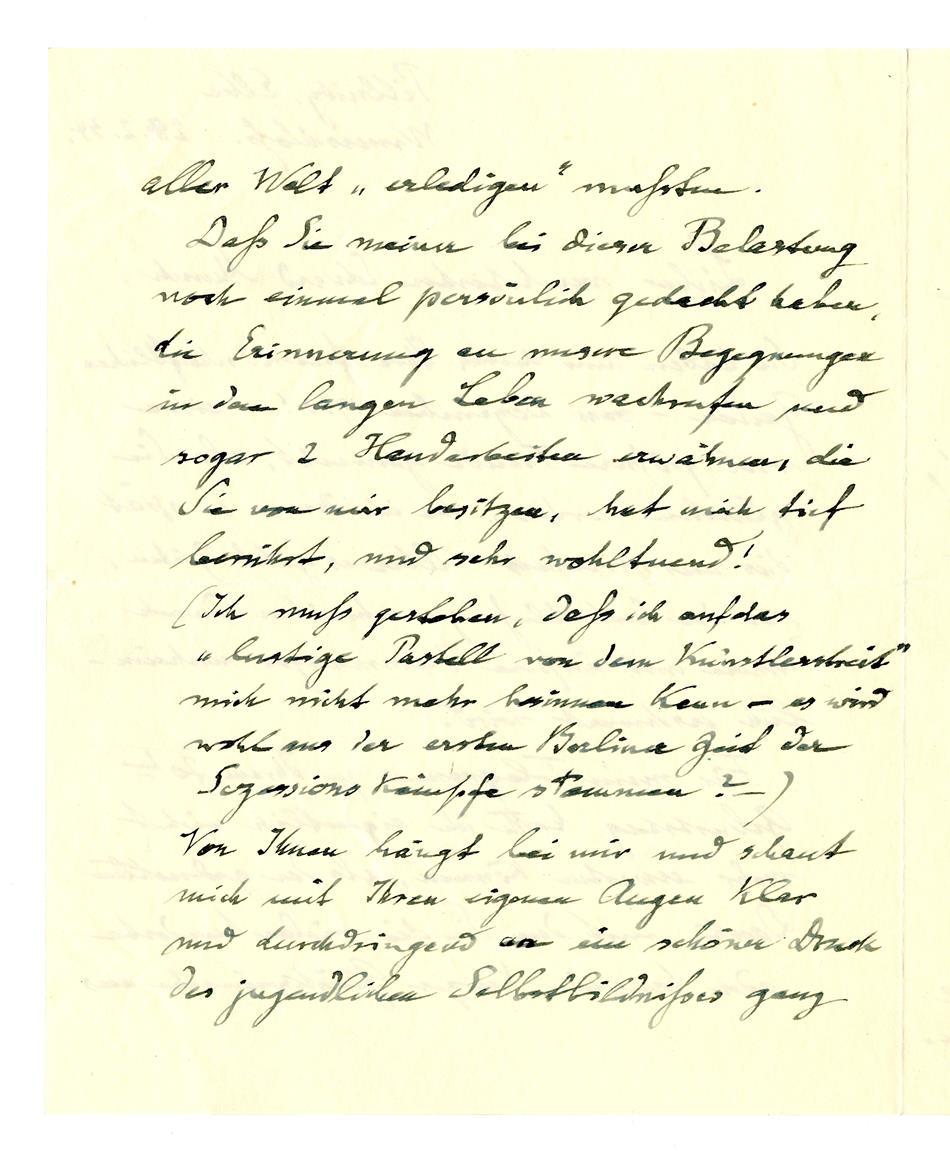 aller Welt „erledigen“ mußten.
Daß Sie meiner bei dieser Belastung
noch einmal persönlich gedacht haben,
die Erinnerung an unsere Begegnungen
in dem langen Leben wachrufen und
sogar 2 Handarbeiten erwähnen, die
Sie von mir besitzen, hat mich tief
berührt, und sehr wohltuend!
(Ich muß gestehen, daß ich auf das
„lustige Pastell von dem Künstlerstreit“
mich nicht mehr besinnen kann – es wird
wohl aus der ersten Berliner Zeit der
Sezessions Kämpfe stammen? –)
Von Ihnen hängt bei mir und schaut
mich mit Ihren eigenen Augen klar
und durchdringend an ein schöner Druck
des jugendlichen Selbstbildnißes ganz